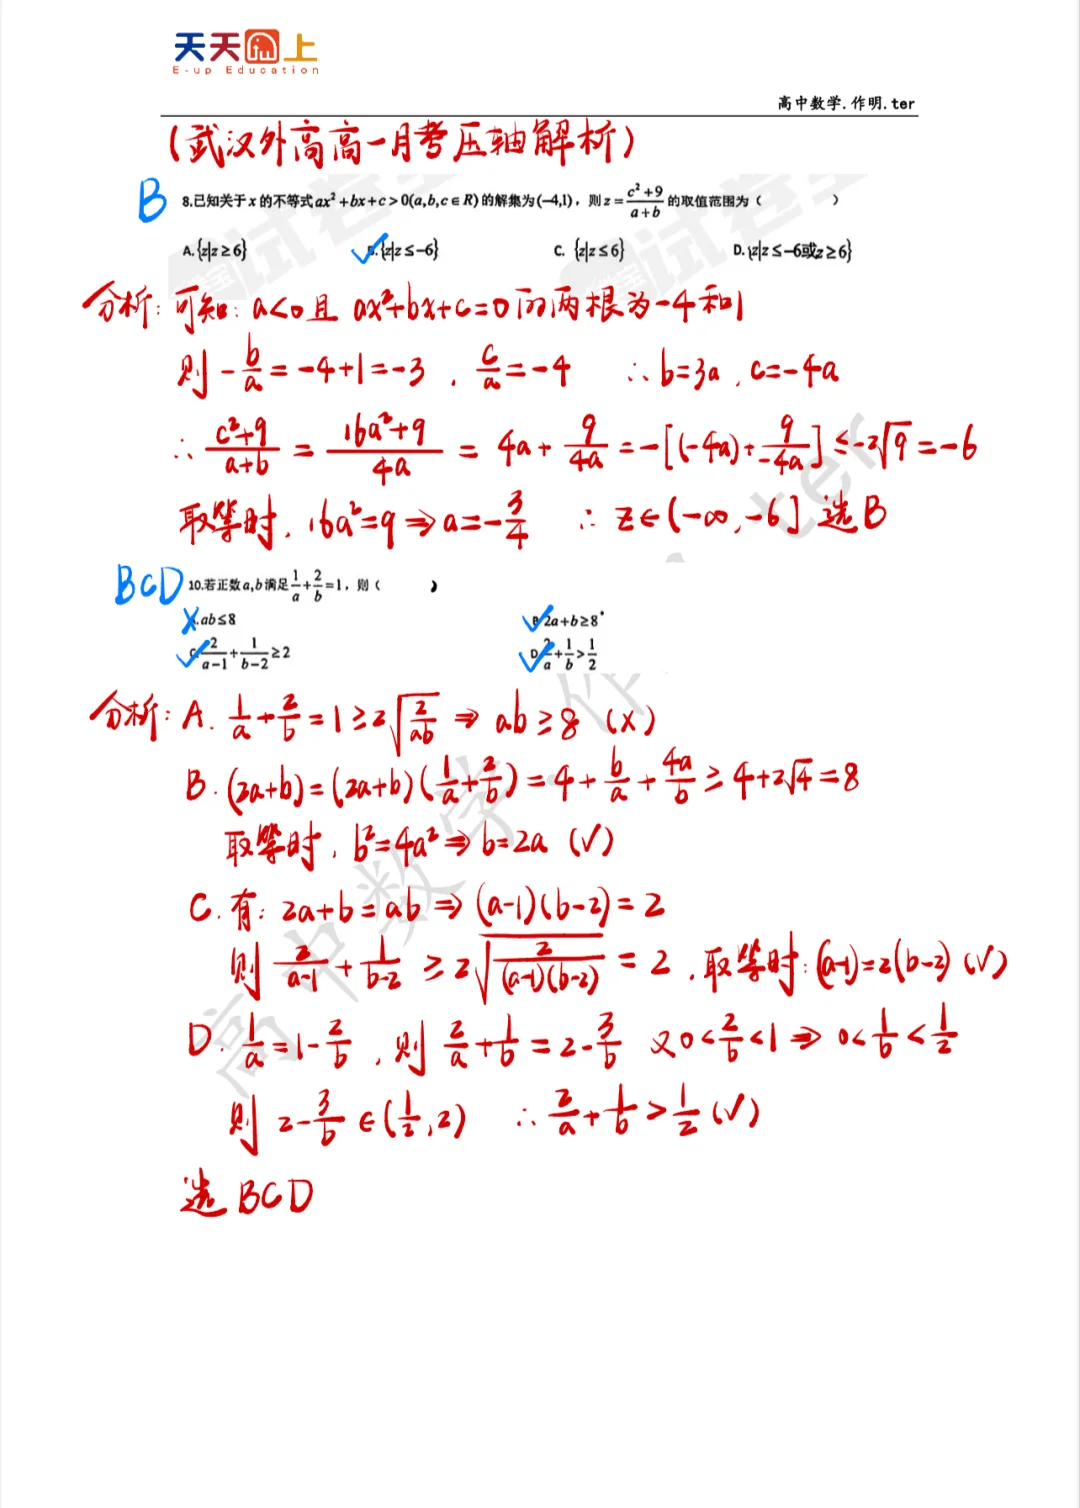 天天向上
E-up Education
高中数学.作明.ter
(武汉外高高一月考压轴解析)
B
8.已知关于 x 的不等式 ax²+bx+c>0(a,b,c∈R) 的解集为(-4,1)，则 z=(c²+9)/(a+b) 的取值范围为（ ）
A.{z|z≥6} B.{z|z≤-6} C. {z|z≤6} D.{z|z≤-6或z≥6}
分析: 可知: a<0且 ax²+bx+c=0的两根为-4和1
则 -b/a=-4+1=-3 , c/a=-4 ∴b=3a, c=-4a
∴ (c²+9)/(a+b) = (16a²+9)/(4a) = 4a+9/(4a) = -[(-4a)+9/(-4a)] ≤ -2√9 = -6
取等时, 16a²=9⇒a=-3/4 ∴ z∈(-∞,-6] 选B
BCD
10.若正数 a,b 满足 1/a+2/b=1，则（ ）
A.ab≤8 B.2a+b≥8
C.2/(a-1)+1/(b-2)≥2 D.2/a+1/b>1/2
分析: A. 1/a+2/b=1≥2√(2/(ab)) ⇒ ab≥8 (×)
B. (2a+b)=(2a+b)(1/a+2/b)=4+b/a+4a/b≥4+2√4=8
取等时, b²=4a²⇒b=2a (√)
C. 有: 2a+b=ab⇒(a-1)(b-2)=2
则 2/(a-1)+1/(b-2) ≥2√(2/((a-1)(b-2))) =2 , 取等时:(a-1)=2(b-2) (√)
D. 1/a=1-2/b , 则 2/a+1/b=2-3/b 又0<2/b<1⇒0<1/b<1/2
则 2-3/b∈(1/2,2) ∴ 2/a+1/b>1/2 (√)
选 BCD
高中数学.作明.ter